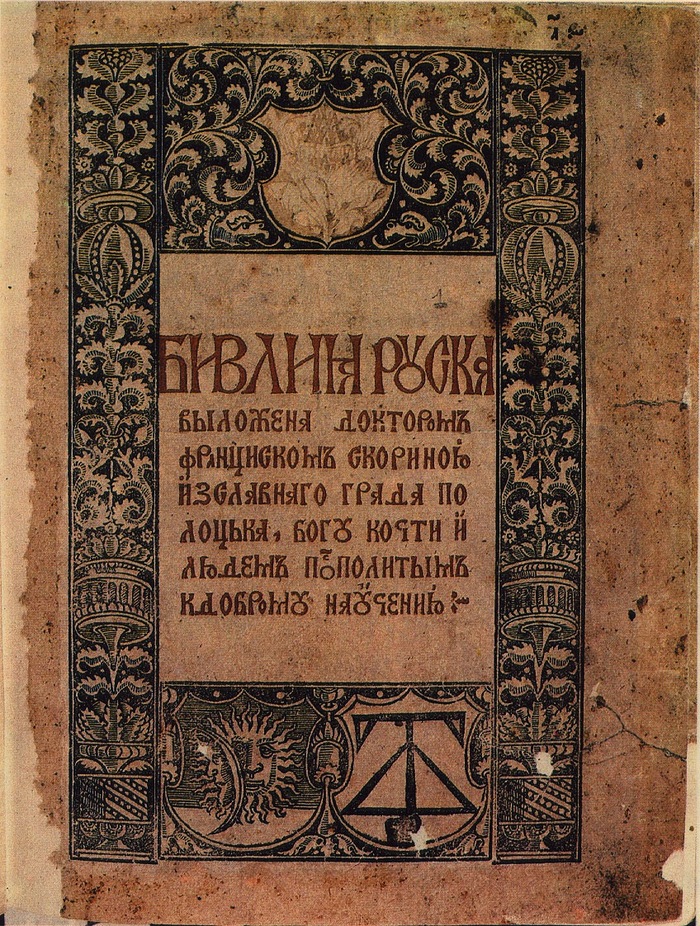 БИВЛИꙖ РꙊСКА
ВЫЛОЖЕНА ДОКТОРОМЪ
ФРАНЦИСКОМЪ СКОРИНОЮ
ИЗСЛАВНАГО ГРАДА ПО
ЛОЦЬКА, БОГꙊ КОЧТИ И
ЛЮДЕМЪ ПОⷭ҇ПОЛИТЫМЪ
КДОБРОМꙊ НАꙊЧЕНИЮ